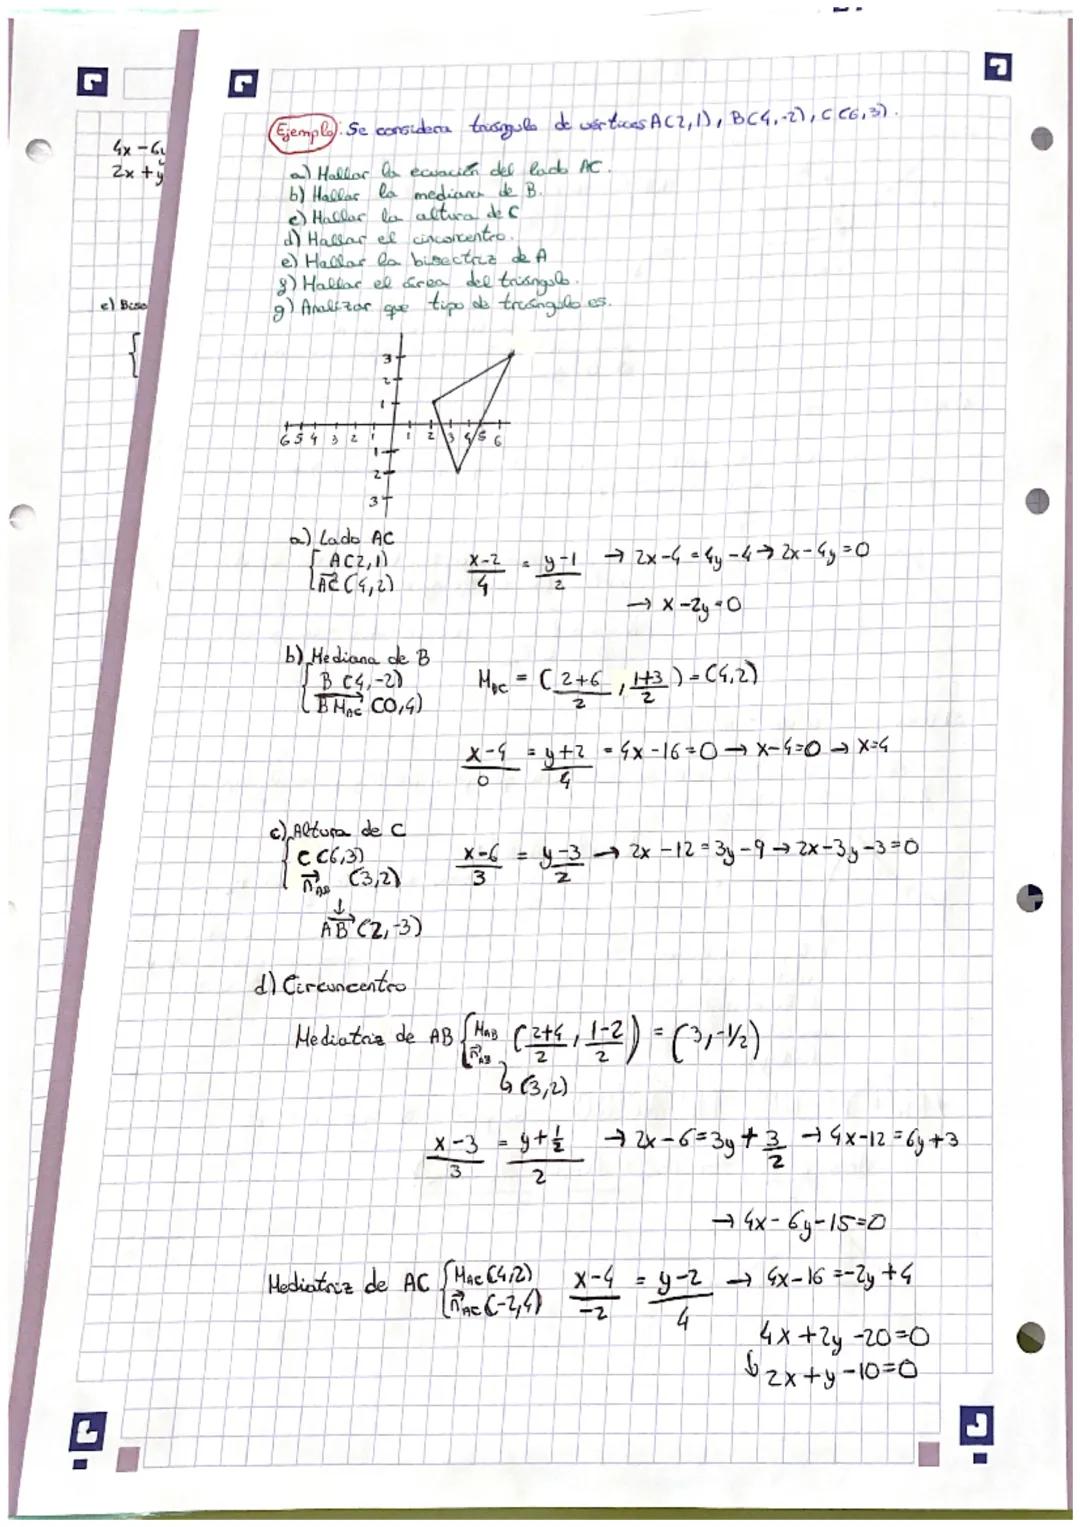 4x-6y
2x+y
e) Bise
Ejemplo: Se considera triángulo de vértices A(2,1), B(4,-2), C(6,3).
a) Hallar la ecuación del lado AC.
b) Hallar la mediana de B.
c) Hallar la altura de C
d) Hallar el circuncentro.
e) Hallar la bisectriz de A
f) Hallar el área del triángulo.
g) Analizar que tipo de triángulo es.
3
2
1
6 5 4 3 2 1 1 2 3 4 5 6
1
2
3
a) Lado AC
A(2,1)
AC (4,2)
x-2/4 = y-1/2 → 2x-4=4y-4 → 2x-4y=0
→ x-2y=0
b) Mediana de B
B (4,-2)
BM_AC (0,4)
M_AC = (2+6/2, 1+3/2) = (4,2)
x-4/0 = y+2/4 = 4x-16=0 → x-4=0 → x=4
c) Altura de C
C (6,3)
n_AB (3,2)
↓
AB (2,-3)
x-6/3 = y-3/2 → 2x-12=3y-9 → 2x-3y-3=0
d) Circuncentro
Mediatriz de AB { M_AB (2+4/2, 1-2/2) = (3,-1/2)
n_AB
↳ (3,2)
x-3/3 = y+1/2/2 → 2x-6=3y+3/2 → 4x-12=6y+3
→ 4x-6y-15=0
Mediatriz de AC { M_AC (4,2)
n_AC (-2,4)
x-4/-2 = y-2/4 → 4x-16=-2y+4
4x+2y-20=0
↓ 2x+y-10=0